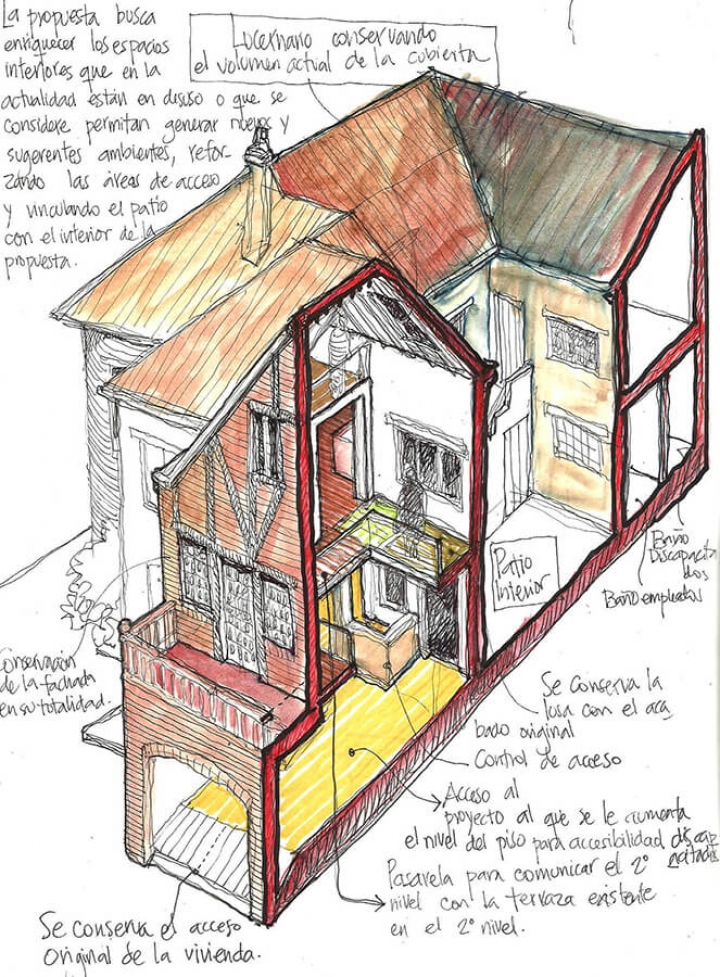 La propuesta busca
enriquecer los espacios
interiores que en la
actualidad están en desuso o que se
considere permitan generar nuevos y
sugerentes ambientes, refor-
zando las áreas de acceso
y vinculando el patio
con el interior de la
propuesta.
Lucernario conservando
el volumen actual de la cubierta
Patio
Interior
Baño
Discapacita
dos
Baño empleados
Conservación
de la fachada
en su totalidad.
Se conserva la
losa con el aca
bado original
Control de acceso
Acceso al
proyecto al que se le aumenta
el nivel del piso para accesibilidad discap
acitados
Pasarela para comunicar el 2º
nivel con la terraza existente
en el 2º nivel.
Se conserva el acceso
original de la vivienda.